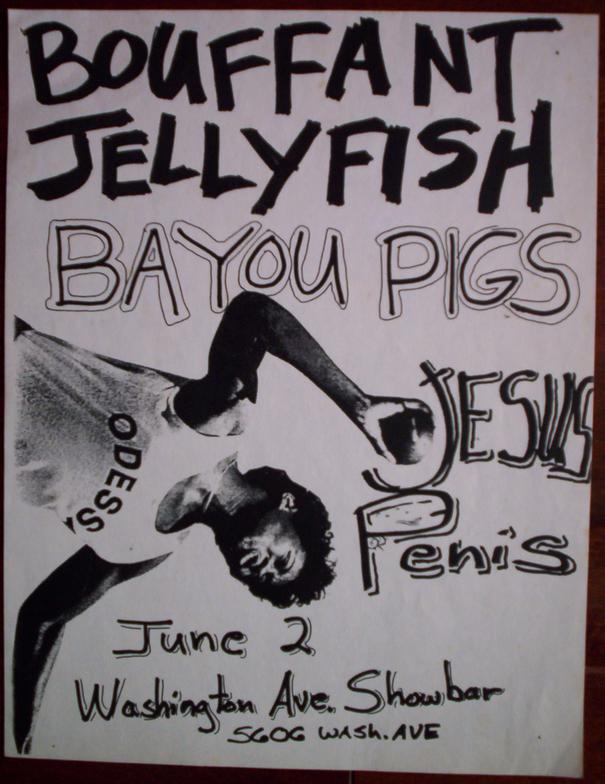 BOUFFANT
JELLYFISH
BAYOU PIGS
JESUS
Penis
ODESS
June 2
Washington Ave. Showbar
5606 WASH. AVE